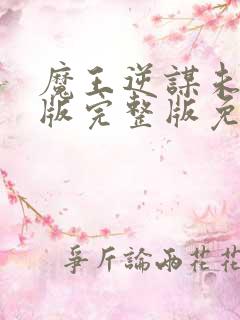 魔王逆謀未
版完整版免
爭斤論兩花花